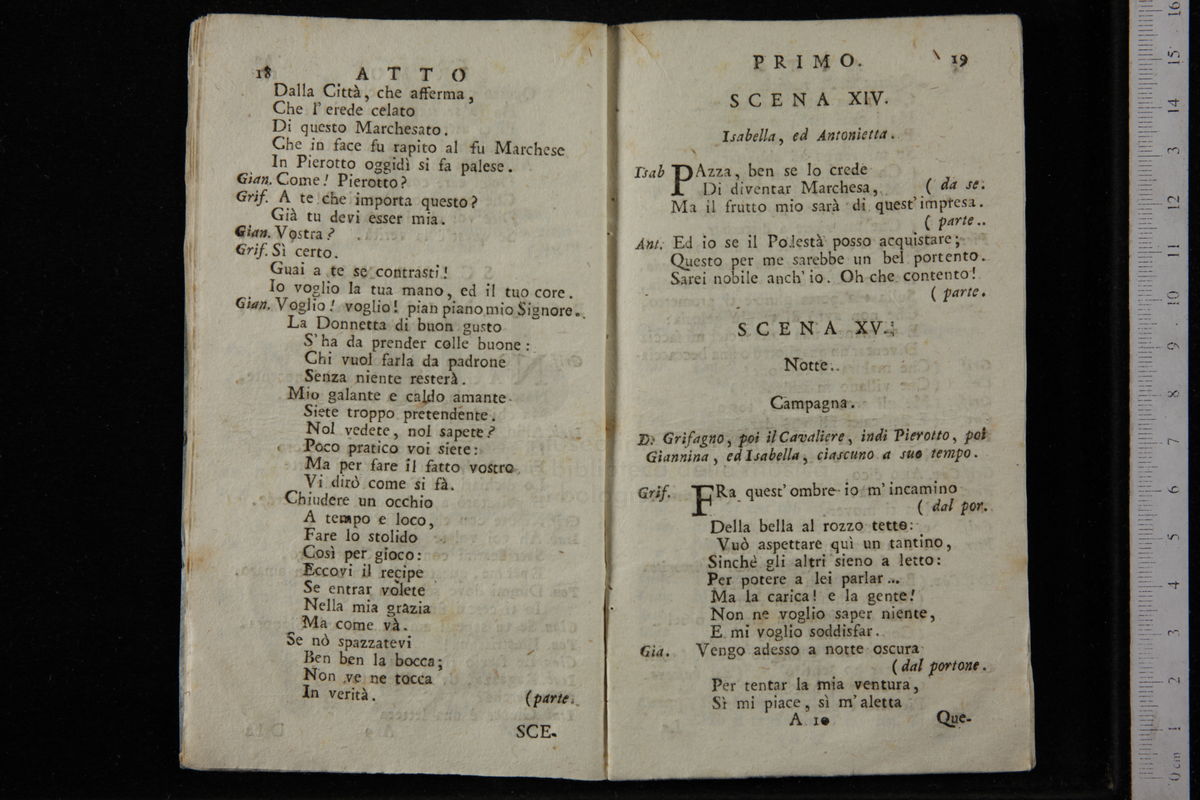 18 ATTO
Dalla Città, che afferma,
Che l'erede celato
Di questo Marchesato.
Che in face fu rapito al fu Marchese
In Pierotto oggidì si fa palese.
Gian. Come! Pierotto?
Grif. A te che importa questo?
Già tu devi esser mia.
Gian. Vostra?
Grif. Sì certo.
Guai a te se contrasti!
Io voglio la tua mano, ed il tuo core.
Gian. Voglio! voglio! pian piano mio Signore.
La Donnetta di buon gusto
S'ha da prender colle buone:
Chi vuol farla da padrone
Senza niente resterà.
Mio galante e caldo amante
Siete troppo pretendente.
Nol vedete, nol sapete?
Poco pratico voi siete:
Ma per fare il fatto vostro
Vi dirò come si fà.
Chiudere un occhio
A tempo e loco,
Fare lo stolido
Così per gioco:
Eccovi il recipe
Se entrar volete
Nella mia grazia
Ma come và.
Se nò spazzatevi
Ben ben la bocca;
Non ve ne tocca
In verità. (parte.
SCE-
PRIMO. 19
SCENA XIV.
Isabella, ed Antonietta.
Isab PAzza, ben se lo crede
Di diventar Marchesa, (da se.
Ma il frutto mio sarà di quest'impresa.
(parte..
Ant. Ed io se il Podestà posso acquistare;
Questo per me sarebbe un bel portento.
Sarei nobile anch'io. Oh che contento!
(parte.
SCENA XV.
Notte..
Campagna.
D. Grifagno, poi il Cavaliere, indi Pierotto, poi
Giannina, ed Isabella, ciascuno a suo tempo.
Grif. FRa quest'ombre io m'incamino
(dal por.
Della bella al rozzo tetto:
Vuò aspettare quì un tantino,
Sinchè gli altri sieno a letto:
Per potere a lei parlar...
Ma la carica! e la gente!
Non ne voglio saper niente,
E mi voglio soddisfar.
Gia. Vengo adesso a notte oscura
(dal portone.
Per tentar la mia ventura,
Sì mi piace, sì m'aletta
A 10 Que-
0 cm 1 2 3 4 5 6 7 8 9 10 11 12 13 14 15 16